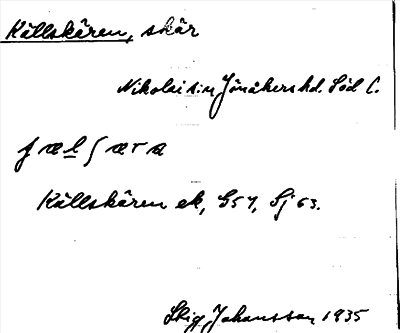 Källskären, skär
Nikolai s:n Jönåkers hd. Söd L.
Källskären ek, G57, Sj 63.
Stig Johansson 1935